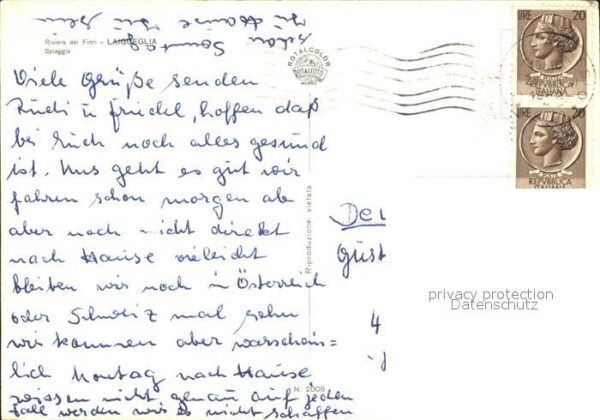 Riviera dei Fiori - LAIGUEGLIA
Spiaggia
ROTALCOLOR
ROTALFOTO
MILANO
LIRE 20
POSTE
REPVBBLICA
ITALIANA
LIRE 20
POSTE
REPVBBLICA
ITALIANA
Viele Grüße senden
Rudi u Friedel, hoffen daß
bei Euch noch alles gesund
ist. Uns geht es gut wir
fahren schon morgen ab
aber noch nicht direkt
nach Hause vieleicht
bleiben wir noch in Österreich
oder Schweiz mal sehn
wir kommen aber warschein=
lich Montag nach Hause
wissen nicht genau auf jeden
Fall werden wir es nicht schaffen
schon Sontag
zu Hause zu sein
Riproduzione vietata
N. 2008
Güst
4
privacy protection
Datenschutz